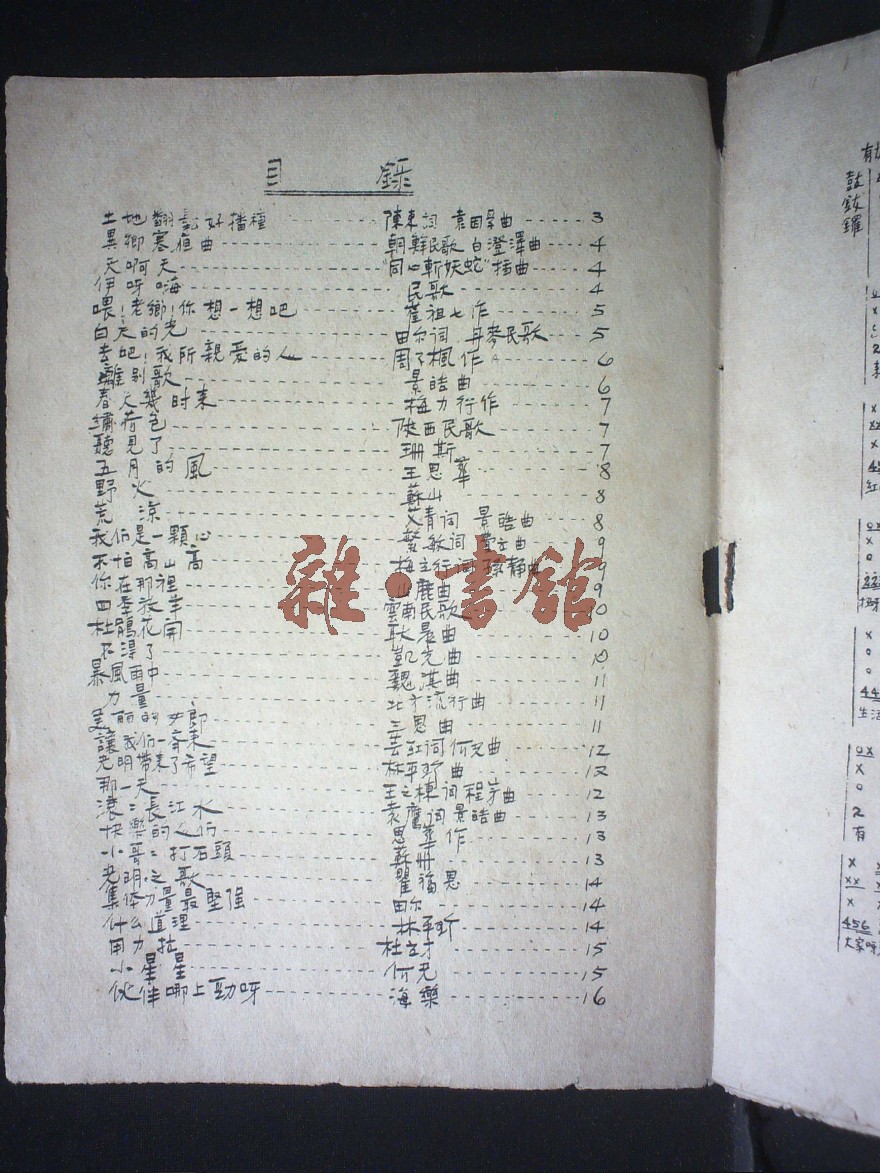 目 錄
土地翻⋯好播種 陳東詞 曲 3
異鄉寒夜曲 朝鮮民歌 白澄澤曲 4
天啊天 "同心斬妖蛇"插曲 4
伊呀嗨 民歌 4
喂!老鄉!你想一想吧 崔祖七作 5
白天的光 田尔詞 丹麥民歌 5
去吧!我所親愛的人 周了楓作 6
離别歌 景皓曲 6
春天幾時来 梅力行作 7
繡荷包 陕西民歌 7
聽見了 珊斯 7
五月的風 王思華 8
野火 蘇山 8
荒凉 艾青詞 景皓曲 8
我們是一顆心 敏詞 曲 9
不怕高山高 9
你在那裡 9
四季放羊 雲南民歌 10
杜鵑花開 耿晟曲 10
不得了 凱光曲 10
暴風雨中 魏淇曲 11
力量 北方流行曲 11
美丽的女郎 三思曲 11
讓我們一齊来 芸紅詞 何文曲 12
光明带来了希望 林平珩曲 12
那一天 王之棟詞 程芳曲 12
滚滚長江水 袁鷹詞 景皓曲 13
快樂的人們 思華作 13
小哥哥打石頭 蘇州 13
光明之歌 瞿猶思 14
集体力量最堅强 田尔 14
什么道理 林平珩 14
用力拉 杜立才 15
小星星 何光 15
伙伴哪上勁呀 海樂 16
雜·書館
鼓
鈸
鑼
生活
有
456
大家呀